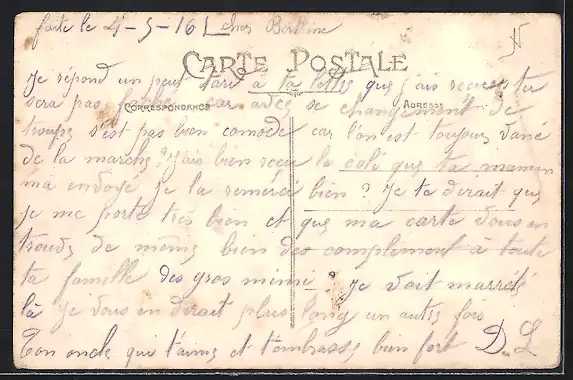 faite le 4-5-16 L chère Berthine
CARTE POSTALE
Je répond un peut tard à ta lettre que j'ais recue te
sera pas fachée car avec se changement de
CORRESPONDANCE ADRESSE
troups s'est pas bien comode car l'on est toujours dans
de la marche? J'ais bien recu le colé que ta maman
ma envoyé je la remerci bien? Je te dirait que
je me porte très bien et que ma carte vous en
trouve de mêmes bien des compliment à toute
ta famille des gros mimie? Je doit marrété
là Je vous en dirait plus long un autre fois
Ton oncle qui t'aime et t'embrasse bien fort D. L